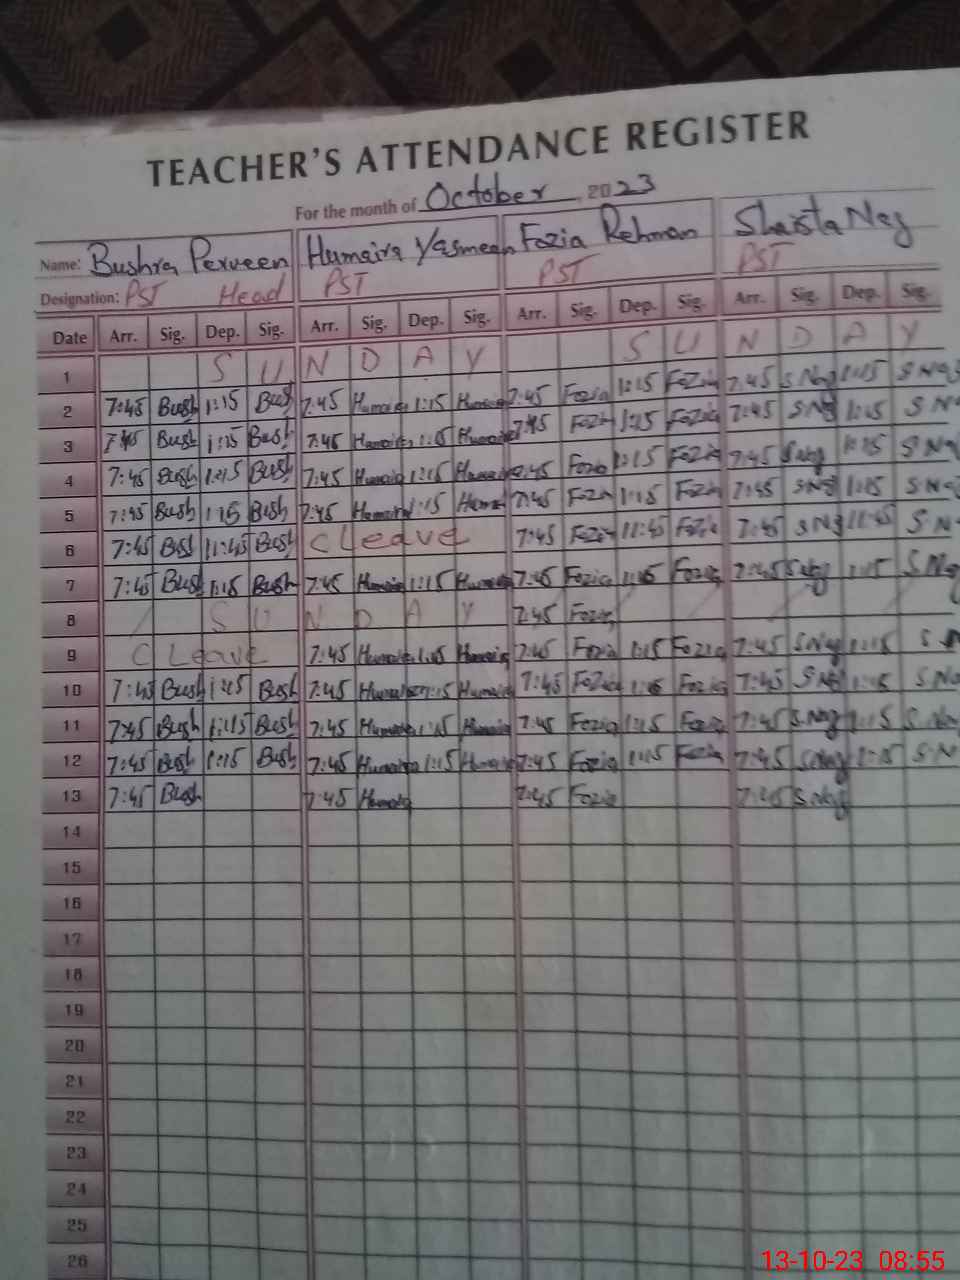 TEACHER'S ATTENDANCE REGISTER
For the month of October, 2023
Name: Bushra Perveen Humaira Yasmeen Fozia Rehman Shaista Naz
Designation: PST Head PST PST PST
Date Arr. Sig. Dep. Sig. Arr. Sig. Dep. Sig. Arr. Sig. Dep. Sig. Arr. Sig. Dep. Sig.
1 S U N D A Y S U N D A Y
2 7:45 Bush 1:15 Bush 7:45 Humaira 1:15 Humaira 7:45 Fozia 1:15 Fozia 7:45 S Naz 1:15 S Naz
3 7:45 Bush 1:15 Bush 7:45 Humaira 1:15 Humaira 7:45 Fozia 1:15 Fozia 7:45 S Naz 1:15 S N
4 7:45 Bush 1:15 Bush 7:45 Humaira 1:15 Humaira 7:45 Fozia 1:15 Fozia 7:45 S Naz 1:15 S Na
5 7:45 Bush 1:15 Bush 7:45 Humaira 1:15 Huma 7:45 Fozia 1:15 Fozia 7:45 S Naz 1:15 S Na
6 7:45 Bush 11:45 Bush C Leave 7:45 Fozia 11:45 Fozia 7:45 S Naz 11:45 S N
7 7:45 Bush 1:15 Bush 7:45 Humaira 1:15 Humaira 7:45 Fozia 1:15 Fozia 7:45 S Naz 1:15 S Na
8 S U N D A Y 7:45 Fozia
9 C Leave 7:45 Humaira 1:15 Humaira 7:45 Fozia 1:15 Fozia 7:45 S Naz 1:15 S N
10 7:45 Bush 1:15 Bush 7:45 Humaira 1:15 Humaira 7:45 Fozia 1:15 Fozia 7:45 S Naz 1:15 S Na
11 7:45 Bush 1:15 Bush 7:45 Humaira 1:15 Humaira 7:45 Fozia 1:15 Fozia 7:45 S Naz 1:15 S Na
12 7:45 Bush 1:15 Bush 7:45 Humaira 1:15 Humaira 7:45 Fozia 1:15 Fozia 7:45 S Naz 1:15 S N
13 7:45 Bush 7:45 Humaira 7:45 Fozia 7:45 S Naz
14
15
16
17
18
19
20
21
22
23
24
25
26
13-10-23 08:55